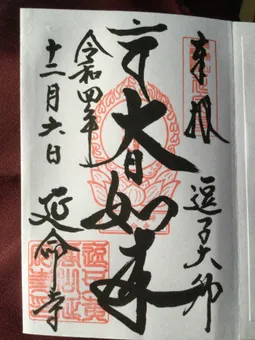 奉拝
逗子大師
大日如来
延命寺
令和四年
十二月六日